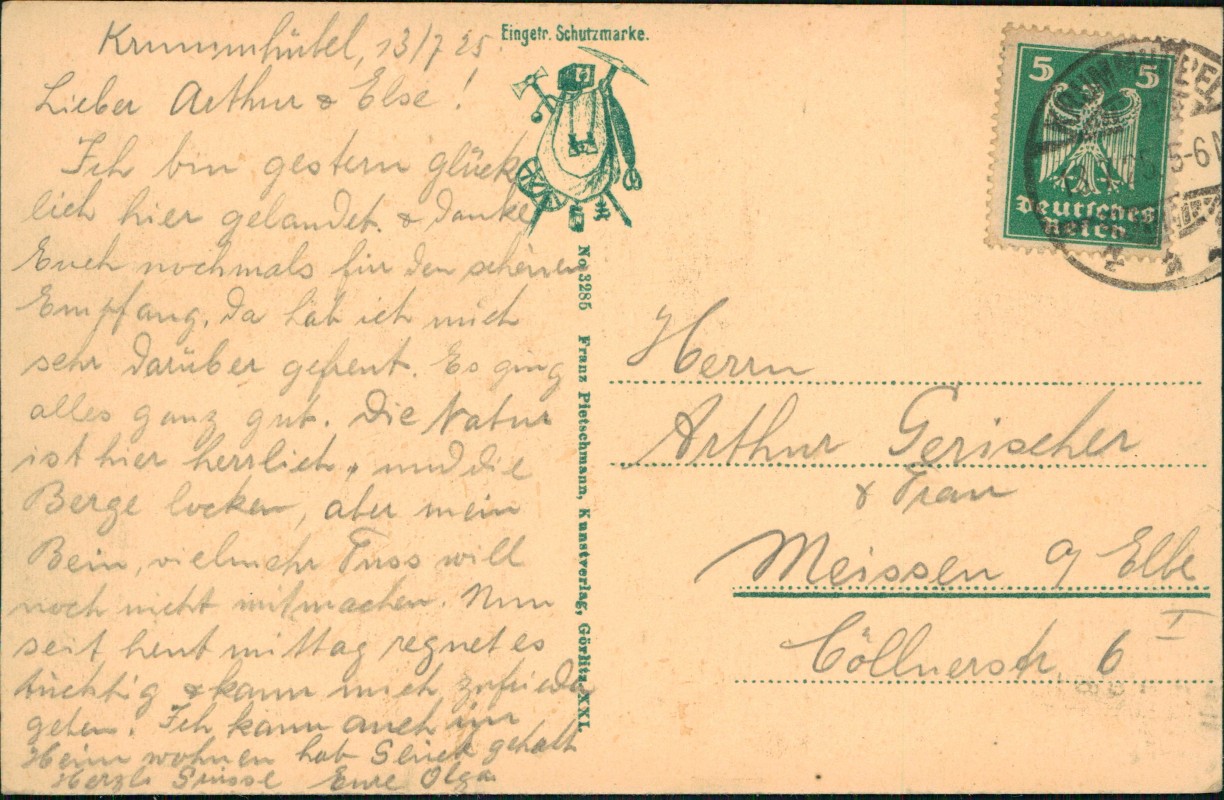 Krummhübel, 13/7 25.
Lieber Arthur & Else!
Ich bin gestern glück
lich hier gelandet. & danke
Euch nochmals für den schönen
Empfang, da hab ich mich
sehr darüber gefreut. Es ging
alles ganz gut. Die Natur
ist hier herrlich, und die
Berge locken, aber mein
Bein, vielmehr Fuss will
noch nicht mitmachen. Nun
seit heut mittag regnet es
tüchtig & kann mich zufrieden
geben. Ich kann auch im
Heim wohnen hab Glück gehabt
Herzl. Grüsse Eure Olga
Eingetr. Schutzmarke.
No 3285 Franz Pietschmann, Kunstverlag, Görlitz XXI.
5 5
Deutsches
Reich
5-6 N
Herrn
Arthur Gerischer
& Frau
Meissen a/ Elbe
Cöllnerstr 6 I